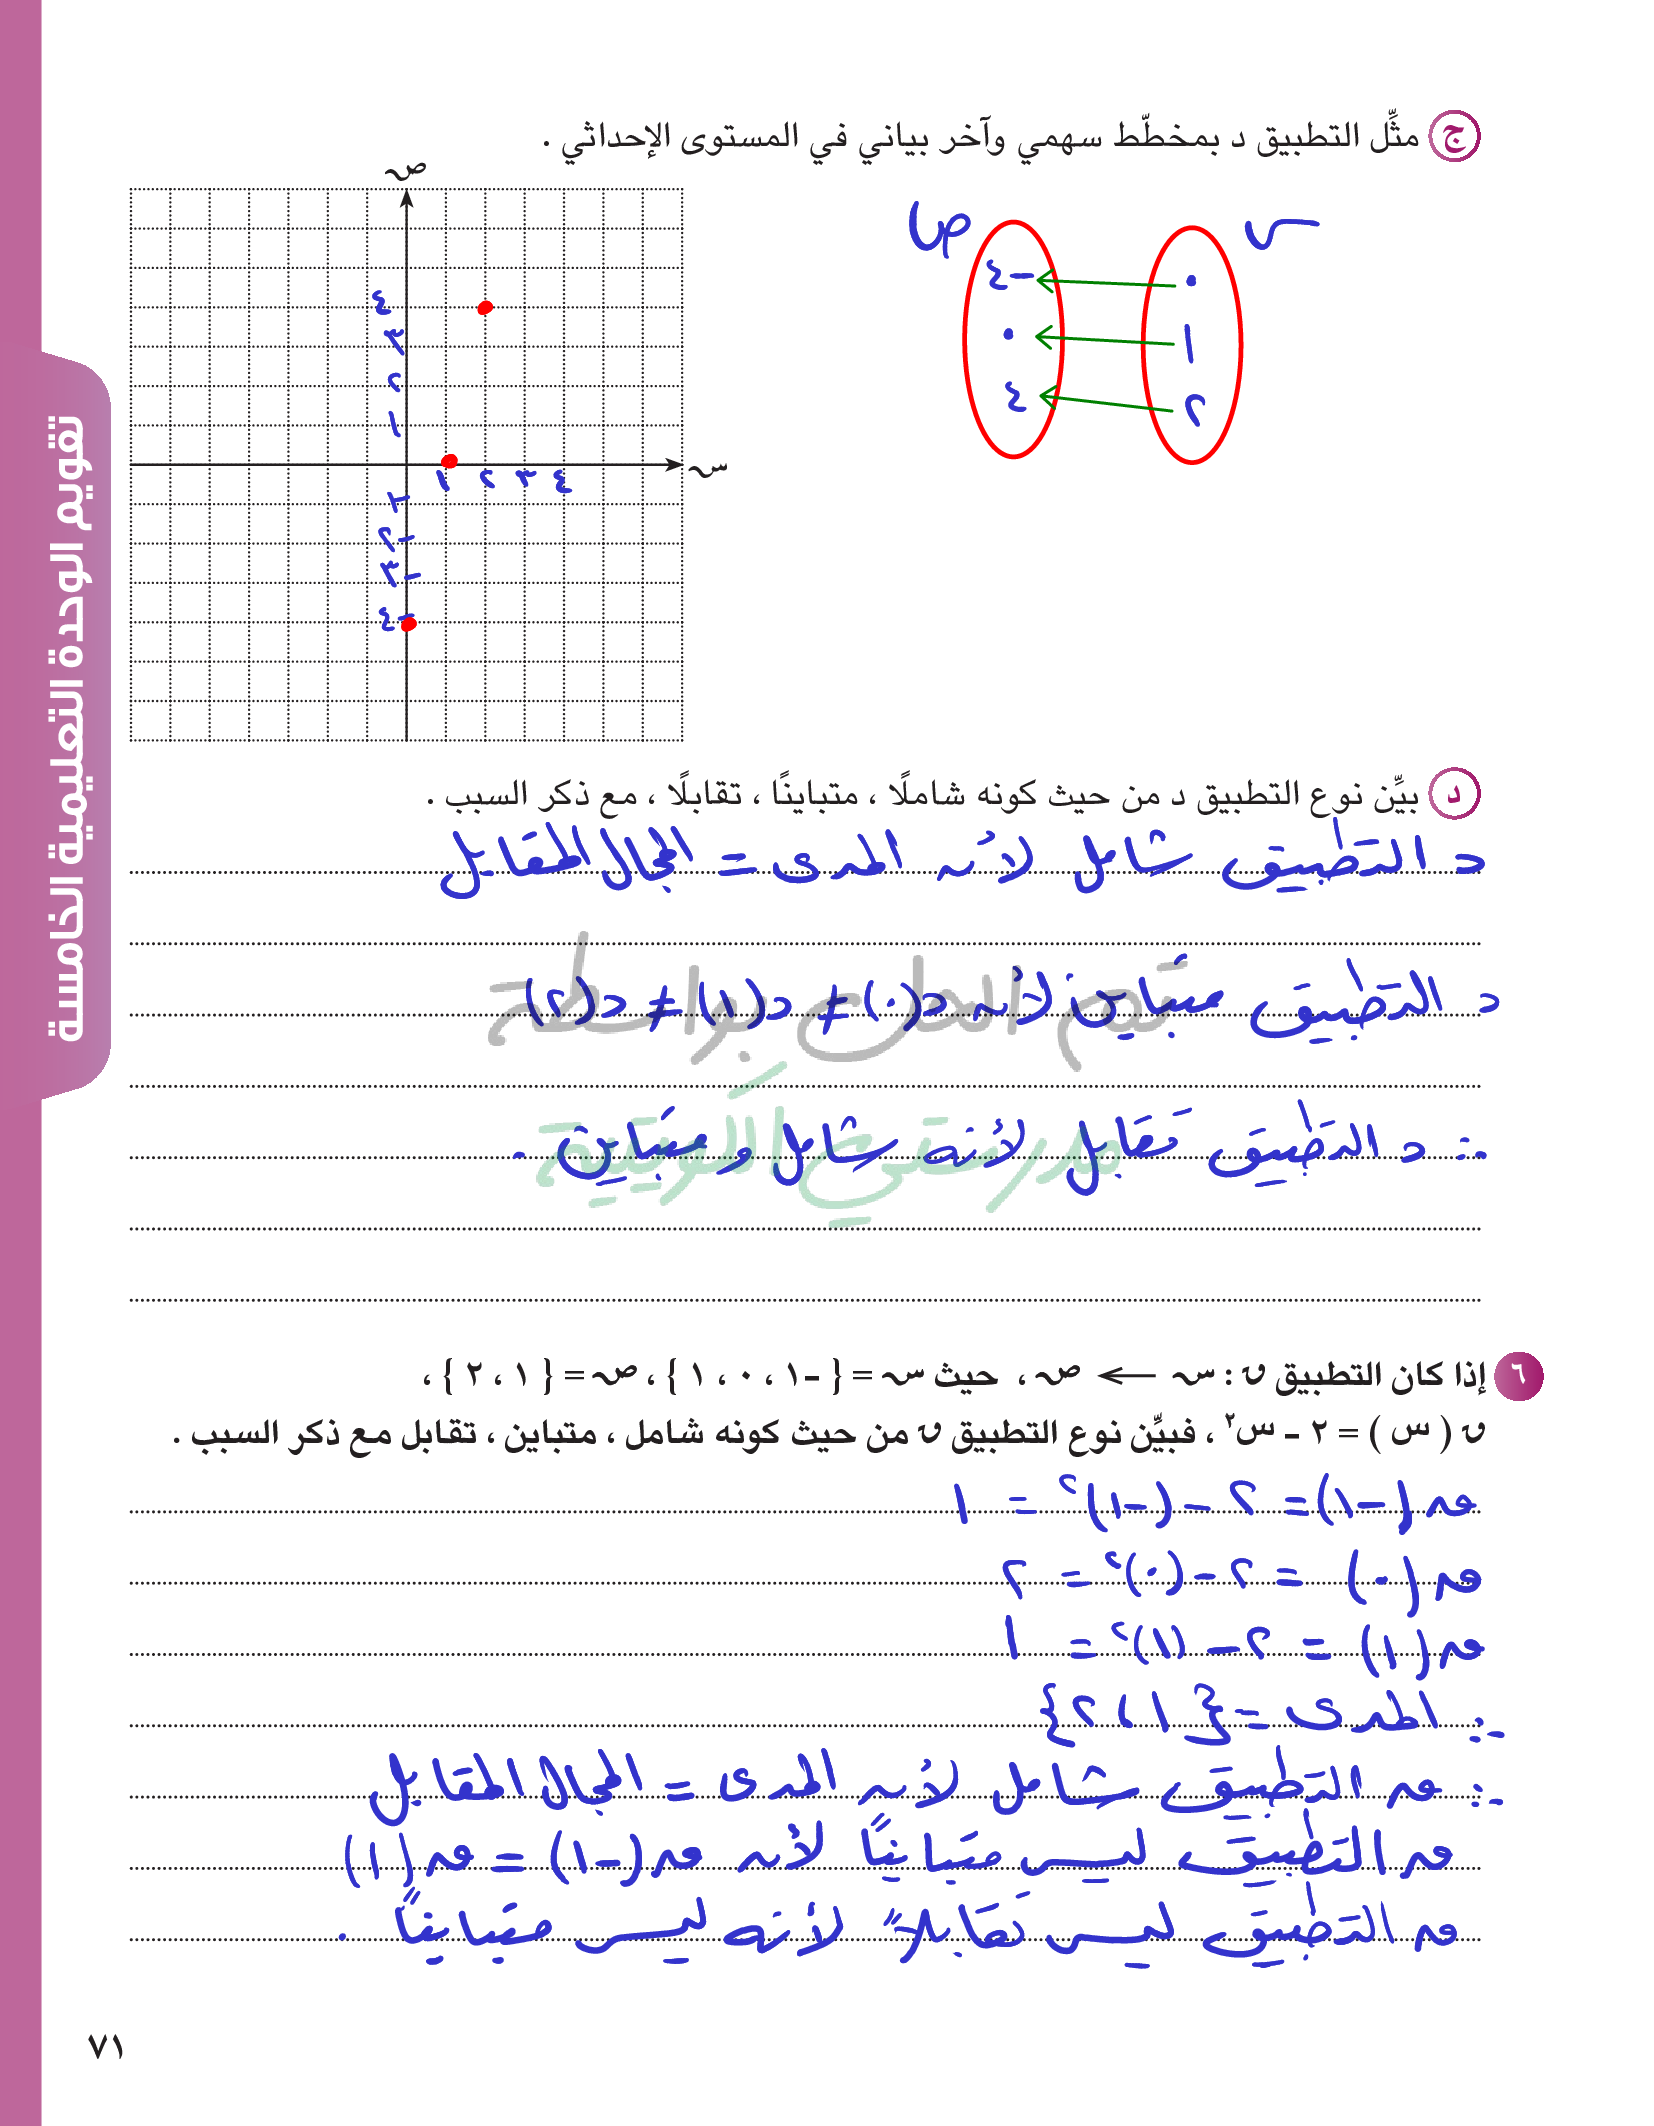 ج مثِّل التطبيق د بمخطّط سهمي وآخر بياني في المستوى الإحداثي .
صـ
٤
٣
٢
١
١ ٢ ٣ ٤
سـ
-١
-٢
-٣
-٤
س ص
٠ -٤
١ ٠
٢ ٤
د بيِّن نوع التطبيق د من حيث كونه شاملًا ، متباينًا ، تقابلًا ، مع ذكر السبب .
د التطبيق شامل لأن المدى = المجال المقابل
د التطبيق متباين لأن د(٠) ≠ د(١) ≠ د(٢)
∴ د التطبيق تقابل لأنه شامل و متباين .
تم الحل بواسطة
مدرستي الكويتية
٦ إذا كان التطبيق ن : سـ ← صـ ، حيث سـ = { -١ ، ٠ ، ١ } ، صـ = { ١ ، ٢ } ،
ن ( س ) = ٢ - س² ، فبيِّن نوع التطبيق ن من حيث كونه شامل ، متباين ، تقابل مع ذكر السبب .
ن(-١) = ٢ - (-١)² = ١
ن(٠) = ٢ - (٠)² = ٢
ن(١) = ٢ - (١)² = ١
∴ المدى = { ١ ، ٢ }
∴ ن التطبيق شامل لأن المدى = المجال المقابل
ن التطبيق ليس متبايناً لأن ن(-١) = ن(١)
ن التطبيق ليس تقابلاً لأنه ليس متبايناً .
تقويم الوحدة التعليمية الخامسة
٧١